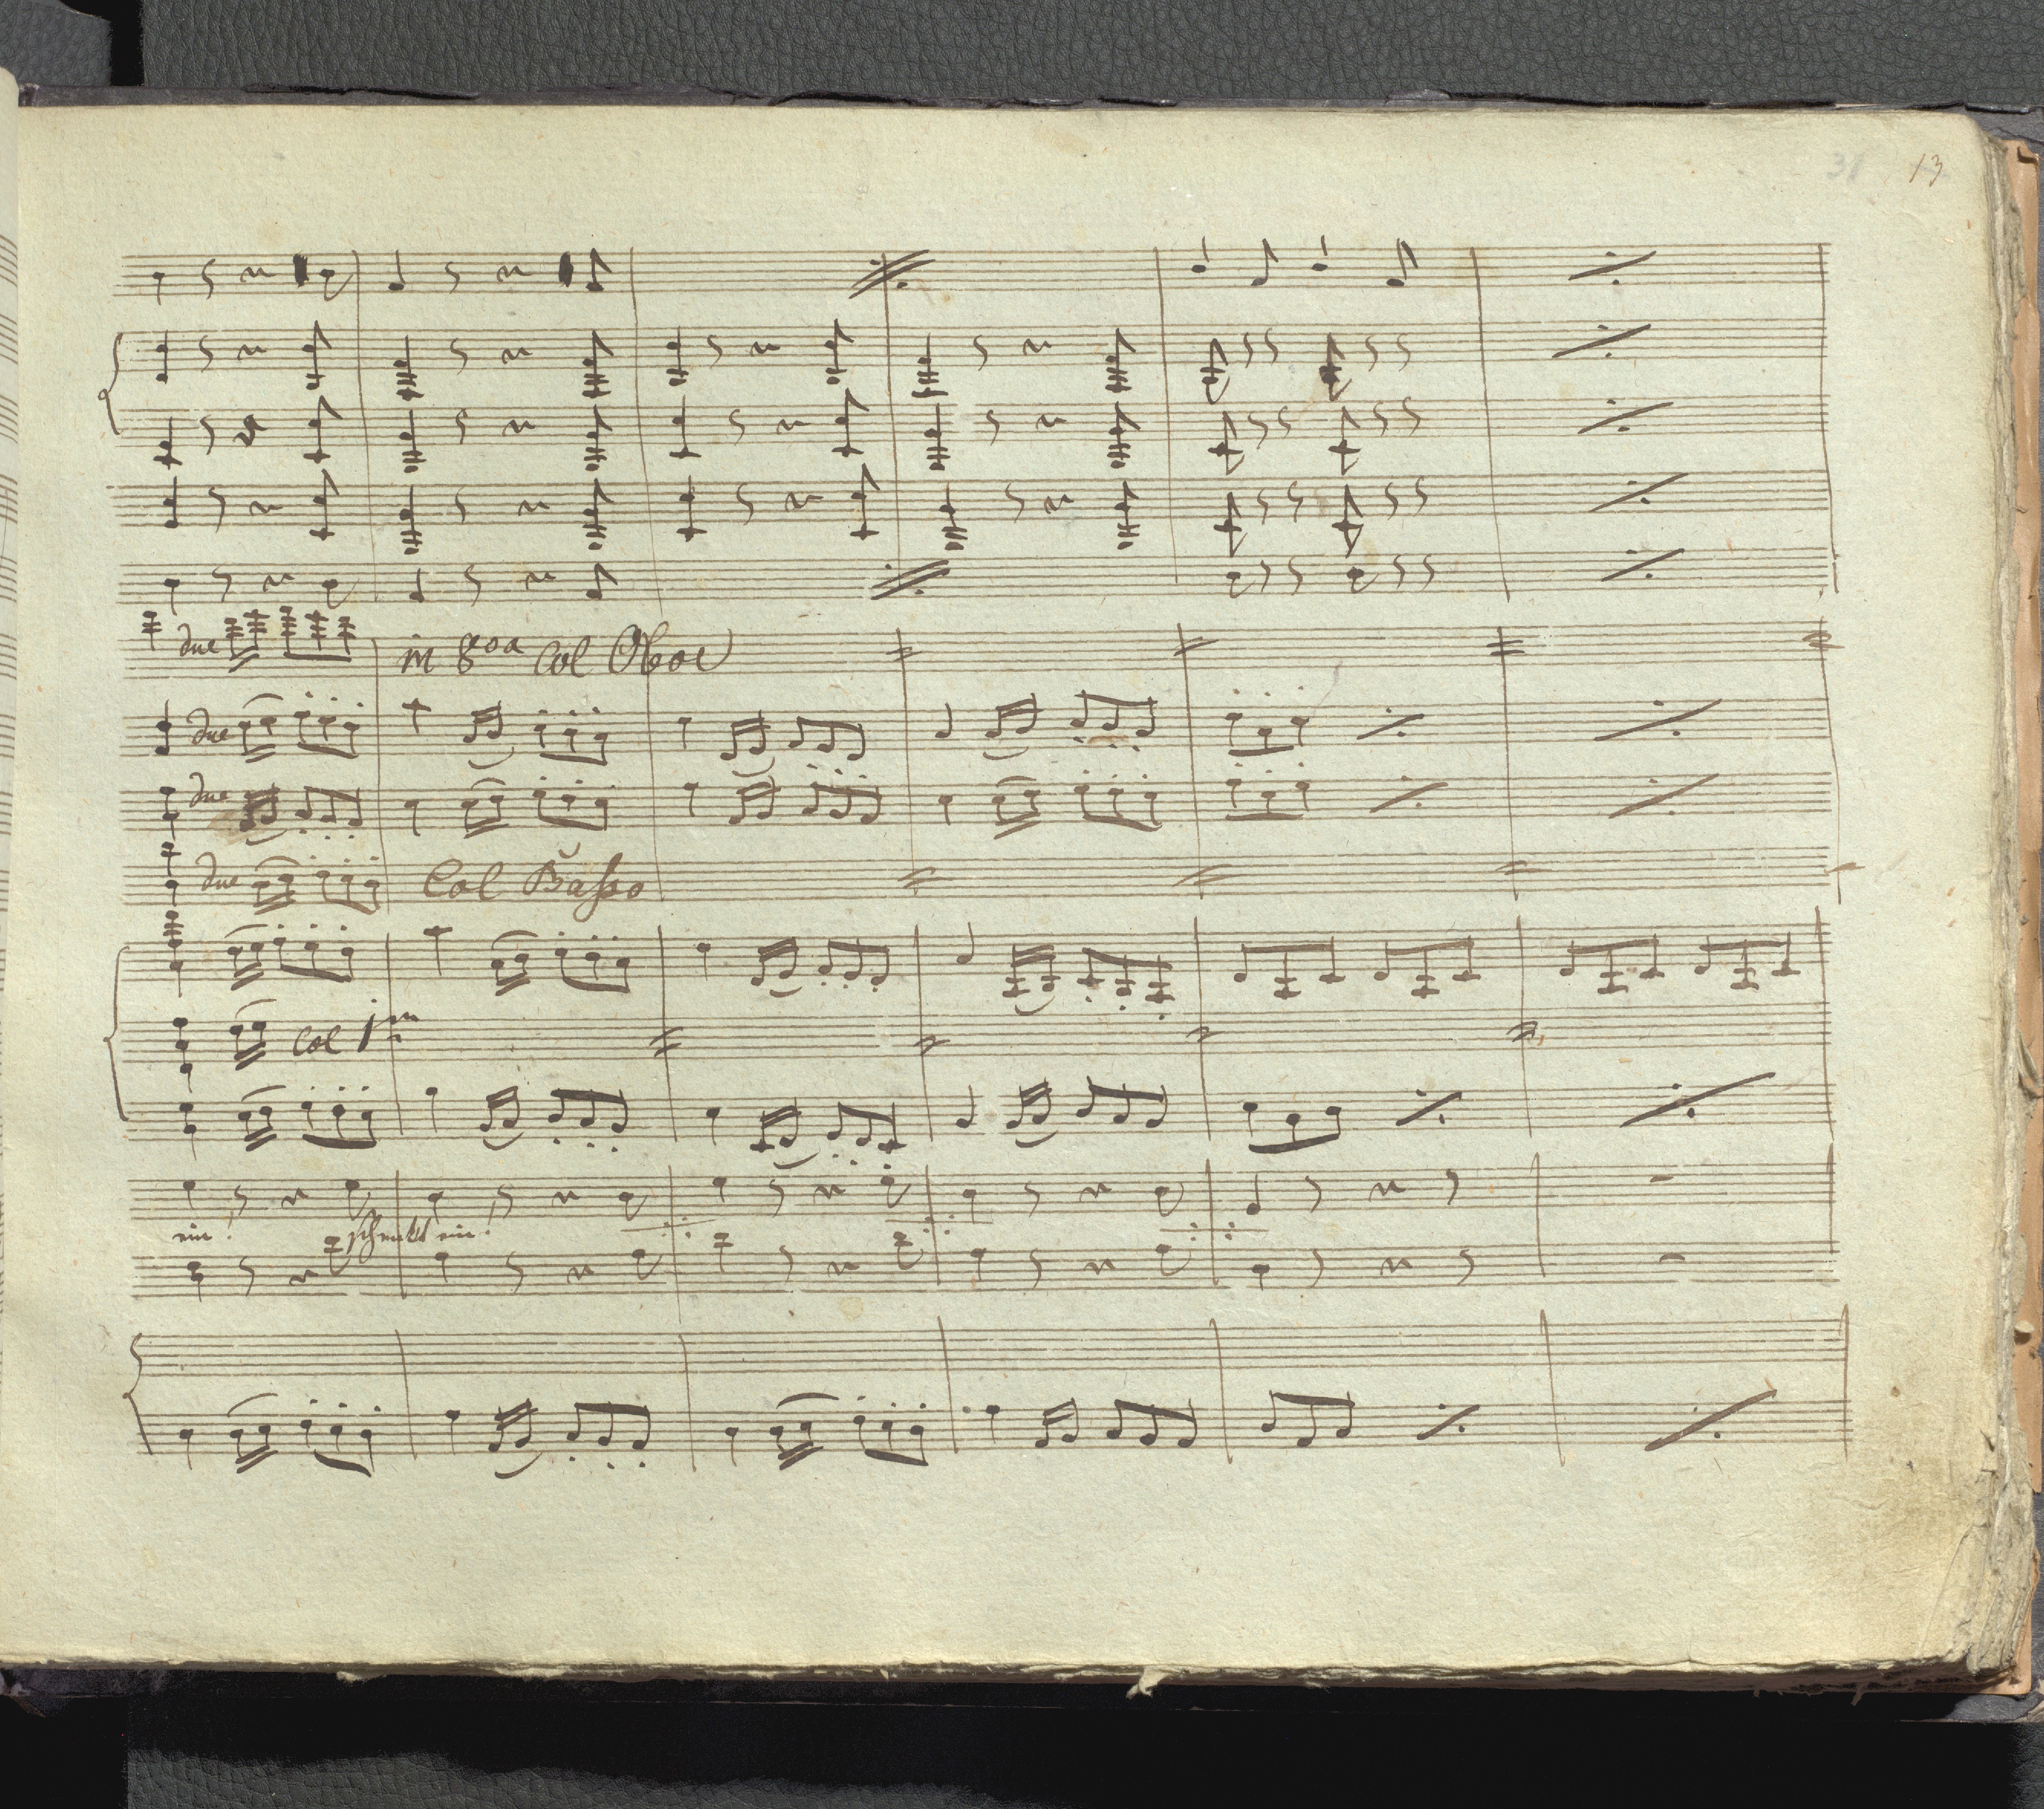 31 13
due in 8va Col Oboe
due
due
due Col Basso
Col 1mo
ein! schenkt ein!